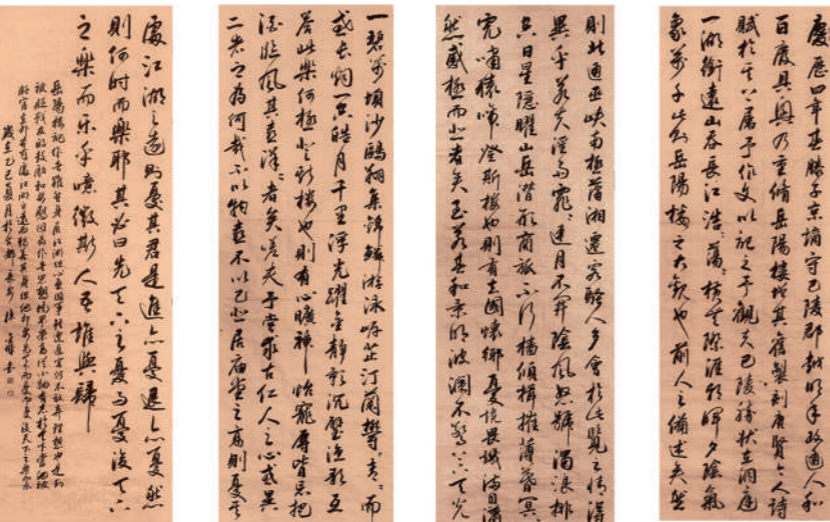 慶历四年春滕子京谪守巴陵郡越明年政通人和
百废具興乃重修岳阳楼增其舊製刻唐賢今人诗
赋於其上属予作文以记之予觀夫巴陵勝状在洞庭
一湖銜遠山吞長江浩浩蕩蕩横无際涯朝暉夕陰氣
象萬千此則岳陽楼之大觀也前人之備述矣然
則北通巫峡南極瀟湘遷客騷人多會於此覽物之情得
異乎若夫淫雨霏霏連月不開陰風怒號濁浪排
空日星隱曜山岳潜形商旅不行檣傾楫摧薄暮冥冥
虎嘯猿啼登斯楼也則有去國懷鄉憂讒畏譏滿目蕭
然感極而悲者矣至若春和景明波瀾不驚上下天光
一碧萬頃沙鷗翔集錦鱗游泳岸芷汀蘭鬱鬱青青而
或長烟一空皓月千里浮光躍金靜影沉璧漁歌互
答此樂何極登斯楼也則有心曠神怡寵辱皆忘把
酒臨風其喜洋洋者矣嗟夫予嘗求古仁人之心或異
二者之為何哉不以物喜不以己悲居廟堂之高則憂其
處江湖之遠則憂其君是進亦憂退亦憂然
則何时而樂耶其必曰先天下之憂而憂後天下
之樂而乐乎噫微斯人吾誰與歸
岳陽樓記作者雖身居江湖但心憂国事雖遭迫害仍不放弃理想也是和
被贬战友的鼓励和安慰
歲在乙巳夏月於